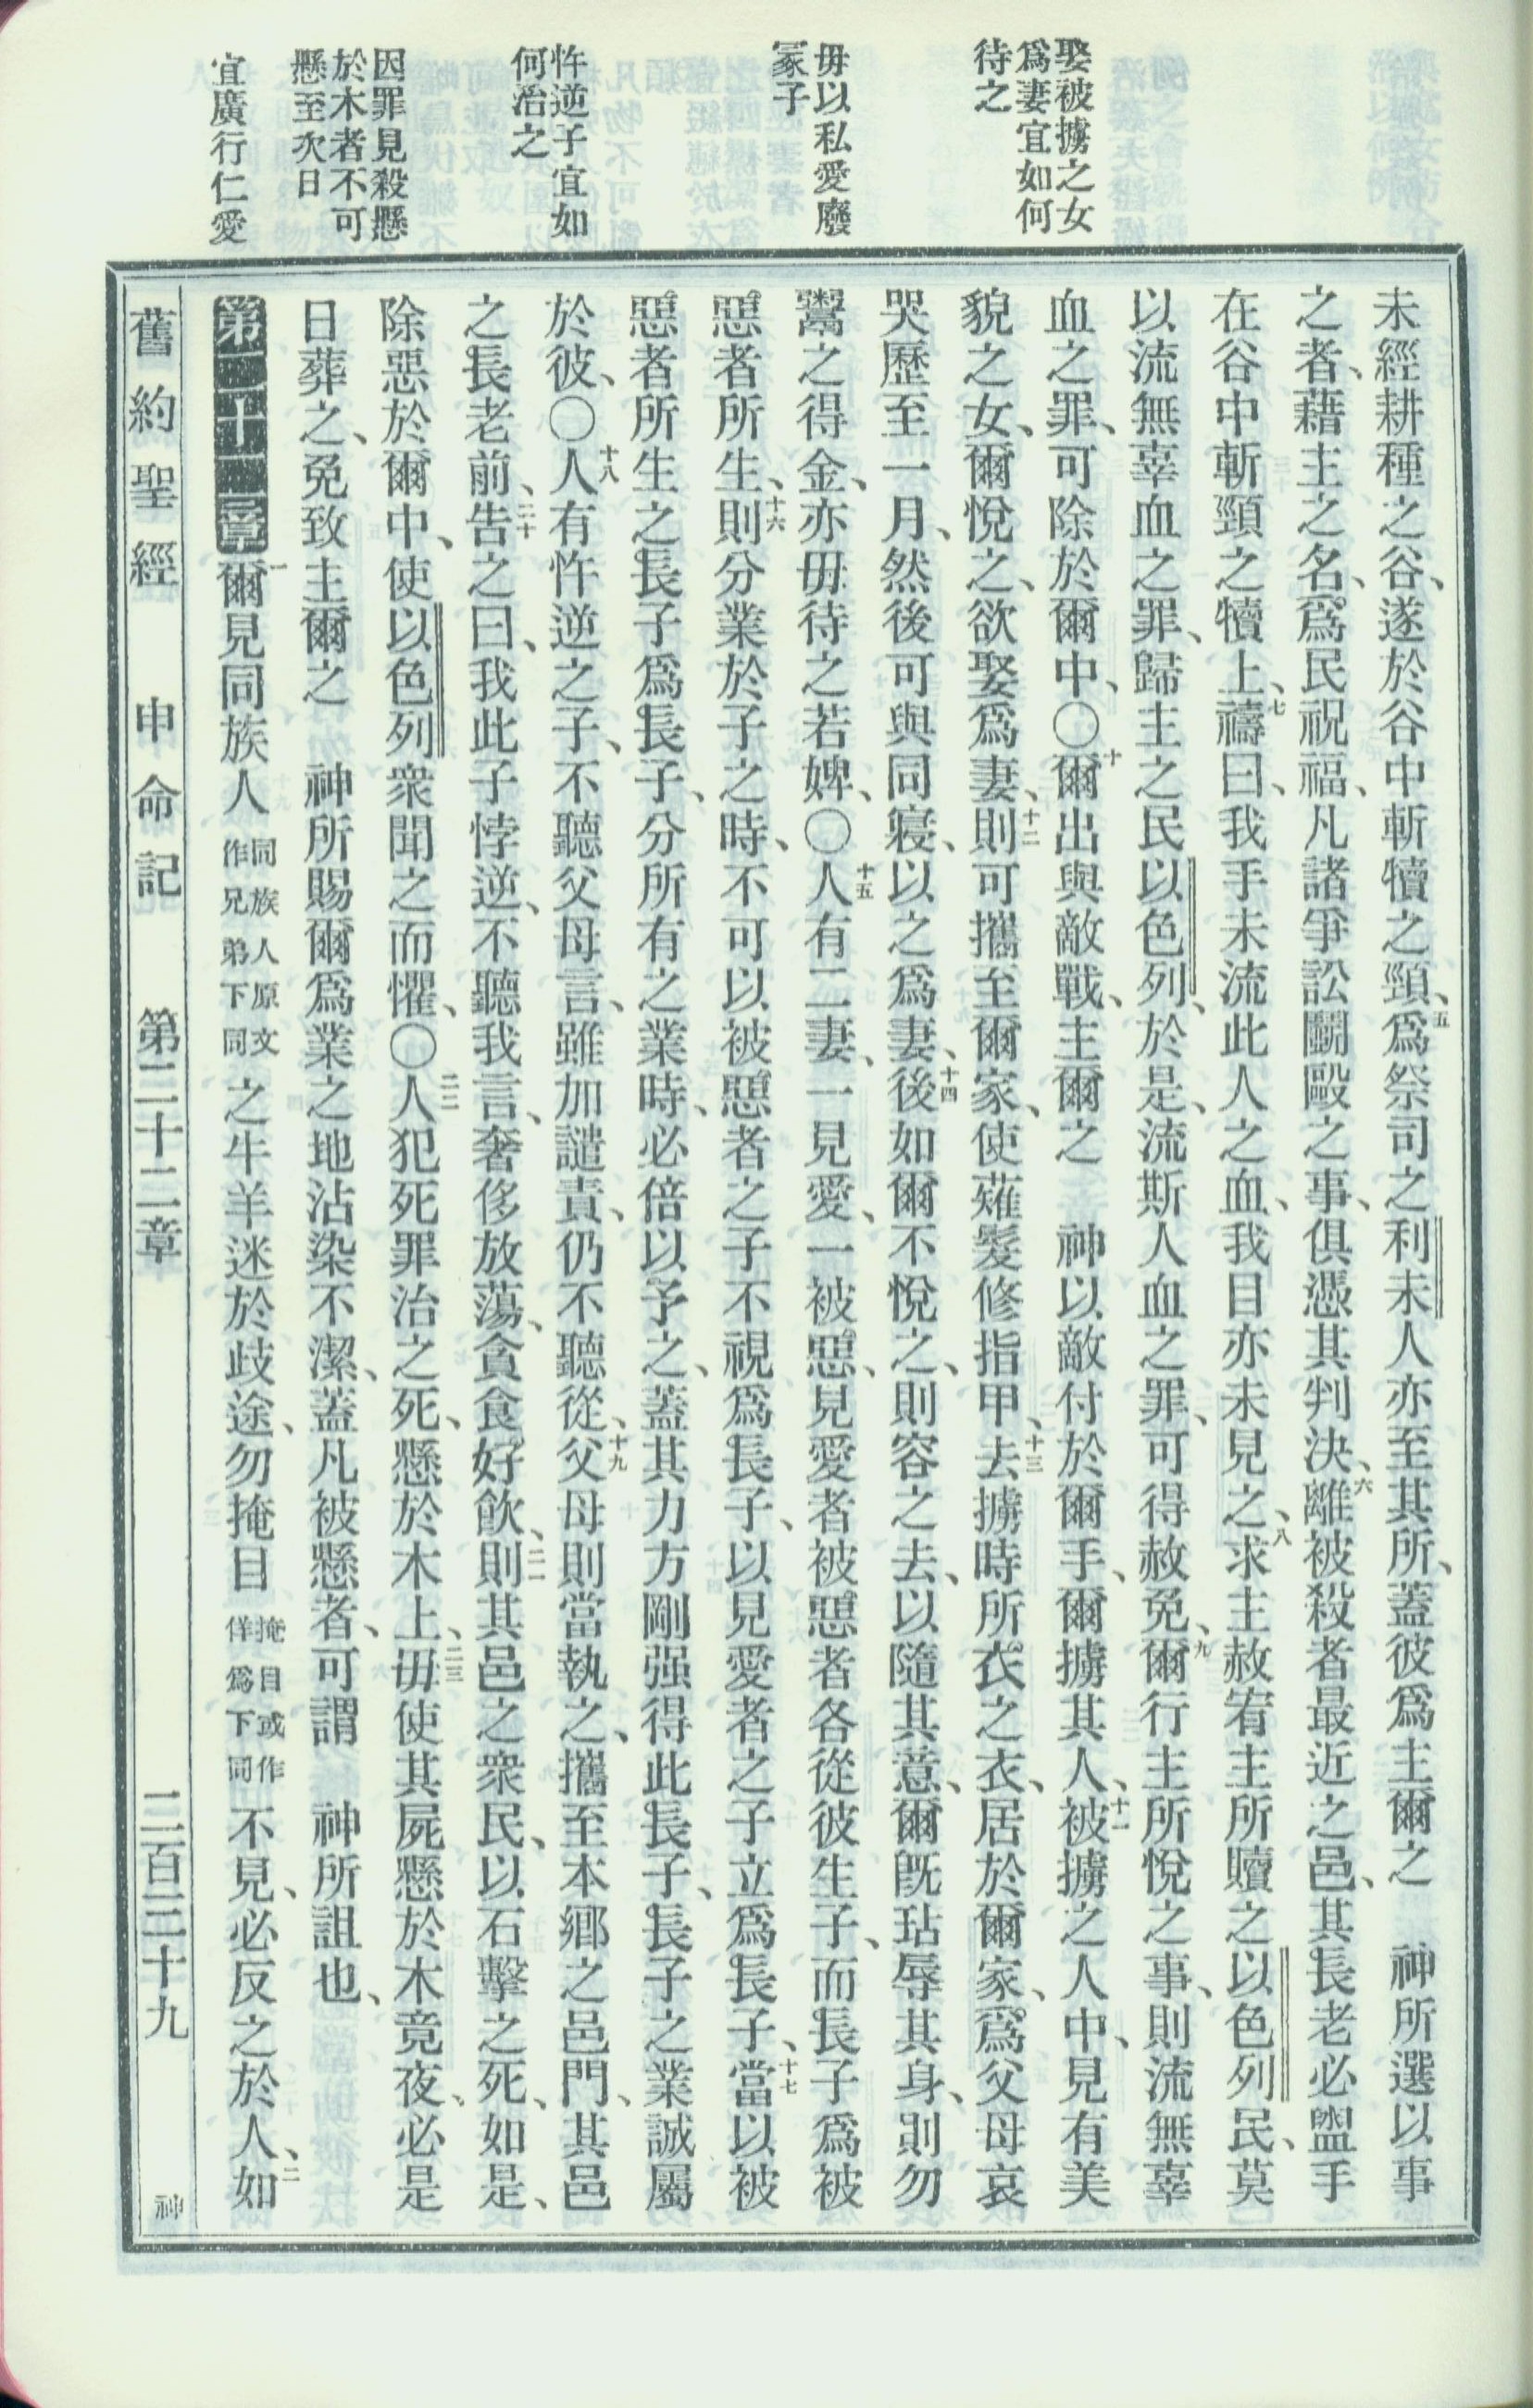 娶被擄之女
爲妻宜如何
待之
毋以私愛廢
冢子
忤逆子宜如
何治之
因罪見殺懸
於木者不可
懸至次日
宜廣行仁愛
未經耕種之谷、遂於谷中斬犢之頸、五爲祭司之利未人亦至其所、蓋彼爲主爾之　神所選以事
之者、藉主之名、爲民祝福、凡諸爭訟鬭毆之事、俱憑其判決、六離被殺者最近之邑、其長老必盥手
在谷中斬頸之犢上、七禱曰、我手未流此人之血、我目亦未見之、八求主赦宥主所贖之以色列民、莫
以流無辜血之罪、歸主之民以色列、於是、流斯人血之罪、可得赦免、九爾行主所悅之事、則流無辜
血之罪、可除於爾中、〇十爾出與敵戰、主爾之　神以敵付於爾手、爾擄其人、十一被擄之人中、見有美
貌之女、爾悅之、欲娶爲妻、十二則可攜至爾家、使薙髮修指甲、十三去擄時所衣之衣、居於爾家、爲父母哀
哭歷至一月、然後可與同寢、以之爲妻、十四後如爾不悅之、則容之去、以隨其意、爾旣玷辱其身、則勿
鬻之得金、亦毋待之若婢、〇十五人有二妻、一見愛、一被惡、見愛者被惡者各從彼生子、而長子爲被
惡者所生、十六則分業於子之時、不可以被惡者之子不視爲長子、以見愛者之子立爲長子、十七當以被
惡者所生之長子爲長子、分所有之業時、必倍以予之、蓋其力方剛强得此長子、長子之業誠屬
於彼、〇十八人有忤逆之子、不聽父母言、雖加譴責、仍不聽從、十九父母則當執之、攜至本鄉之邑門、其邑
之長老前、二十告之曰、我此子悖逆、不聽我言、奢侈放蕩、貪食好飮、二一則其邑之衆民、以石擊之死、如是、
除惡於爾中、使以色列衆聞之而懼、〇二二人犯死罪治之死、懸於木上、二三毋使其屍懸於木竟夜、必是
日葬之、免致主爾之　神所賜爾爲業之地沾染不潔、蓋凡被懸者、可謂　神所詛也、
第二十二章一爾見同族人同族人原文作兄弟下同之牛羊迷於歧途、勿掩目掩目或作佯爲下同不見、必反之於人、二如
舊約聖經　申命記　第二十二章　二百三十九　神